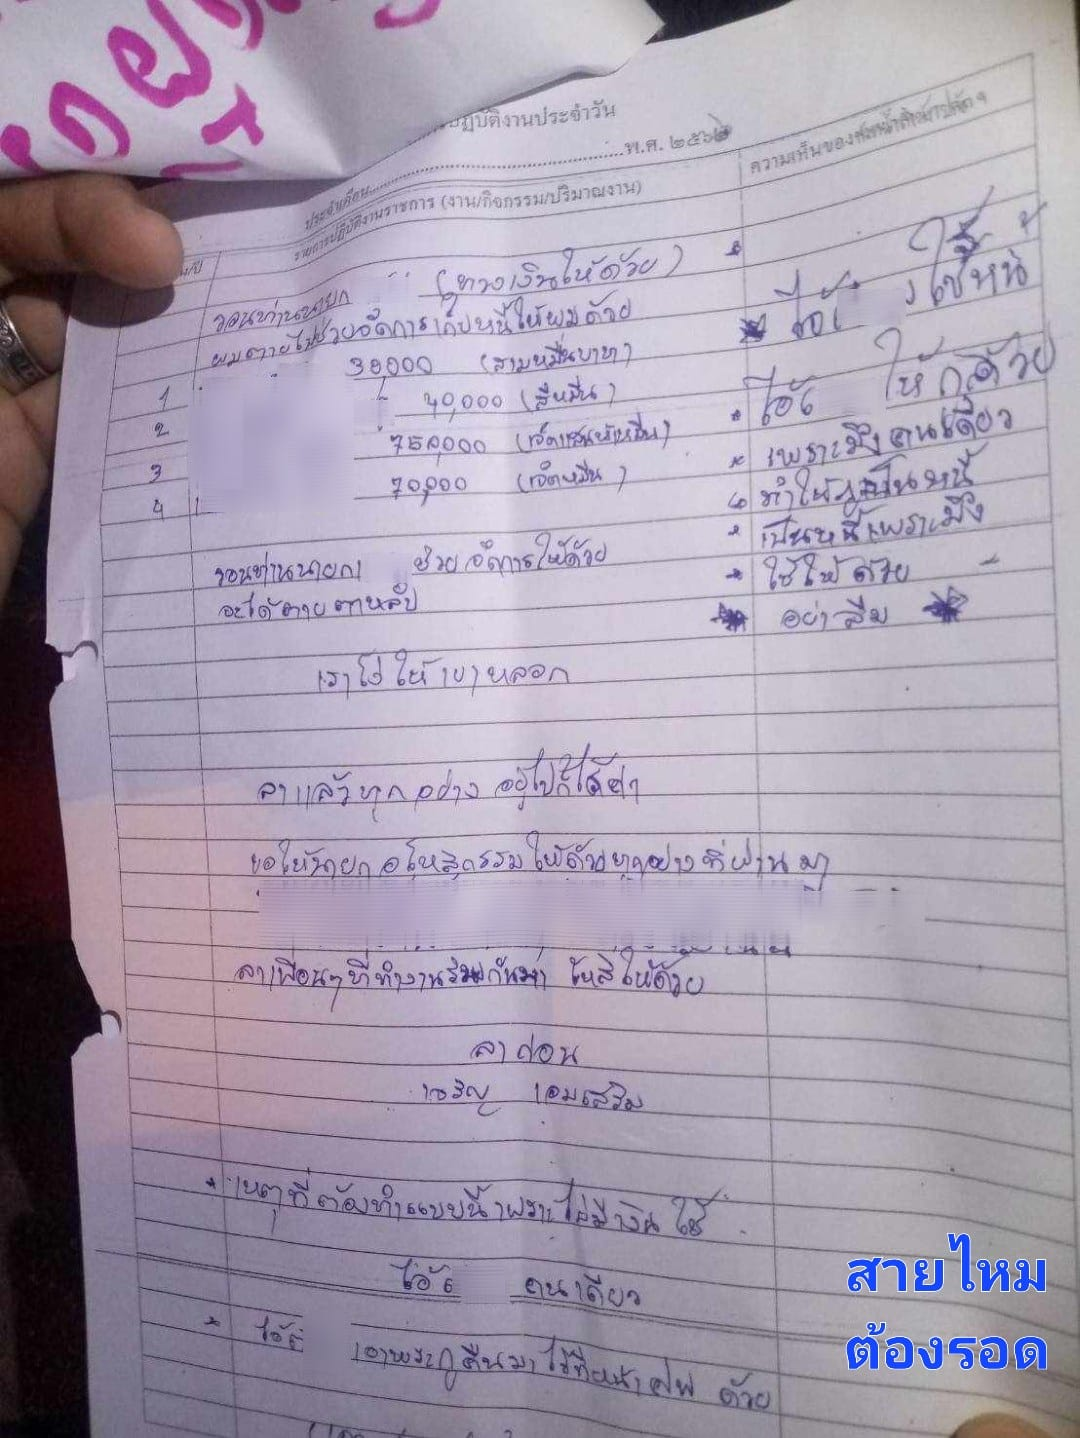 ปฏิบัติงานประจำวัน
ประจำเดือน พ.ศ. ๒๕๖๒
รายการปฏิบัติงานราชการ (งาน/กิจกรรม/ปริมาณงาน)
ความเห็นของ
(ทวงเงินให้ด้วย)
วอนท่านนายก
ผมตายไปช่วยจัดการเก็บหนี้ให้ผมด้วย
1 30,000 (สามหมื่นบาท)
2 40,000 (สี่หมื่น)
3 750,000 (เจ็ดแสนห้าหมื่น)
4 70,000 (เจ็ดหมื่น)
วอนท่านนายก ช่วยจัดการให้ด้วย
จะได้ตายตาหลับ
ใช้หนี้
ให้กูด้วย
เพราะมึงคนเดียว
ทำให้กูเป็นหนี้
เป็นหนี้เพราะมึง
ใช้ให้ด้วย
อย่าลืม
เราโง่ให้เขาหลอก
ลาแล้วทุกอย่าง อยู่ไปก็ไร้ค่า
ขอให้นายกอโหสิกรรมให้ด้วยทุกอย่างที่ผ่านมา
ลาเพื่อนๆที่ทำงานร่วมกันมา โหสิให้ด้วย
ลาก่อน
เจริญ เอมเสริม
* เหตุที่ต้องทำแบบนี้เพราะไม่มีเงินใช้
คนเดียว
เอาพระกูคืนมาไว้ที่หน้าศพ ด้วย
สายไหม
ต้องรอด